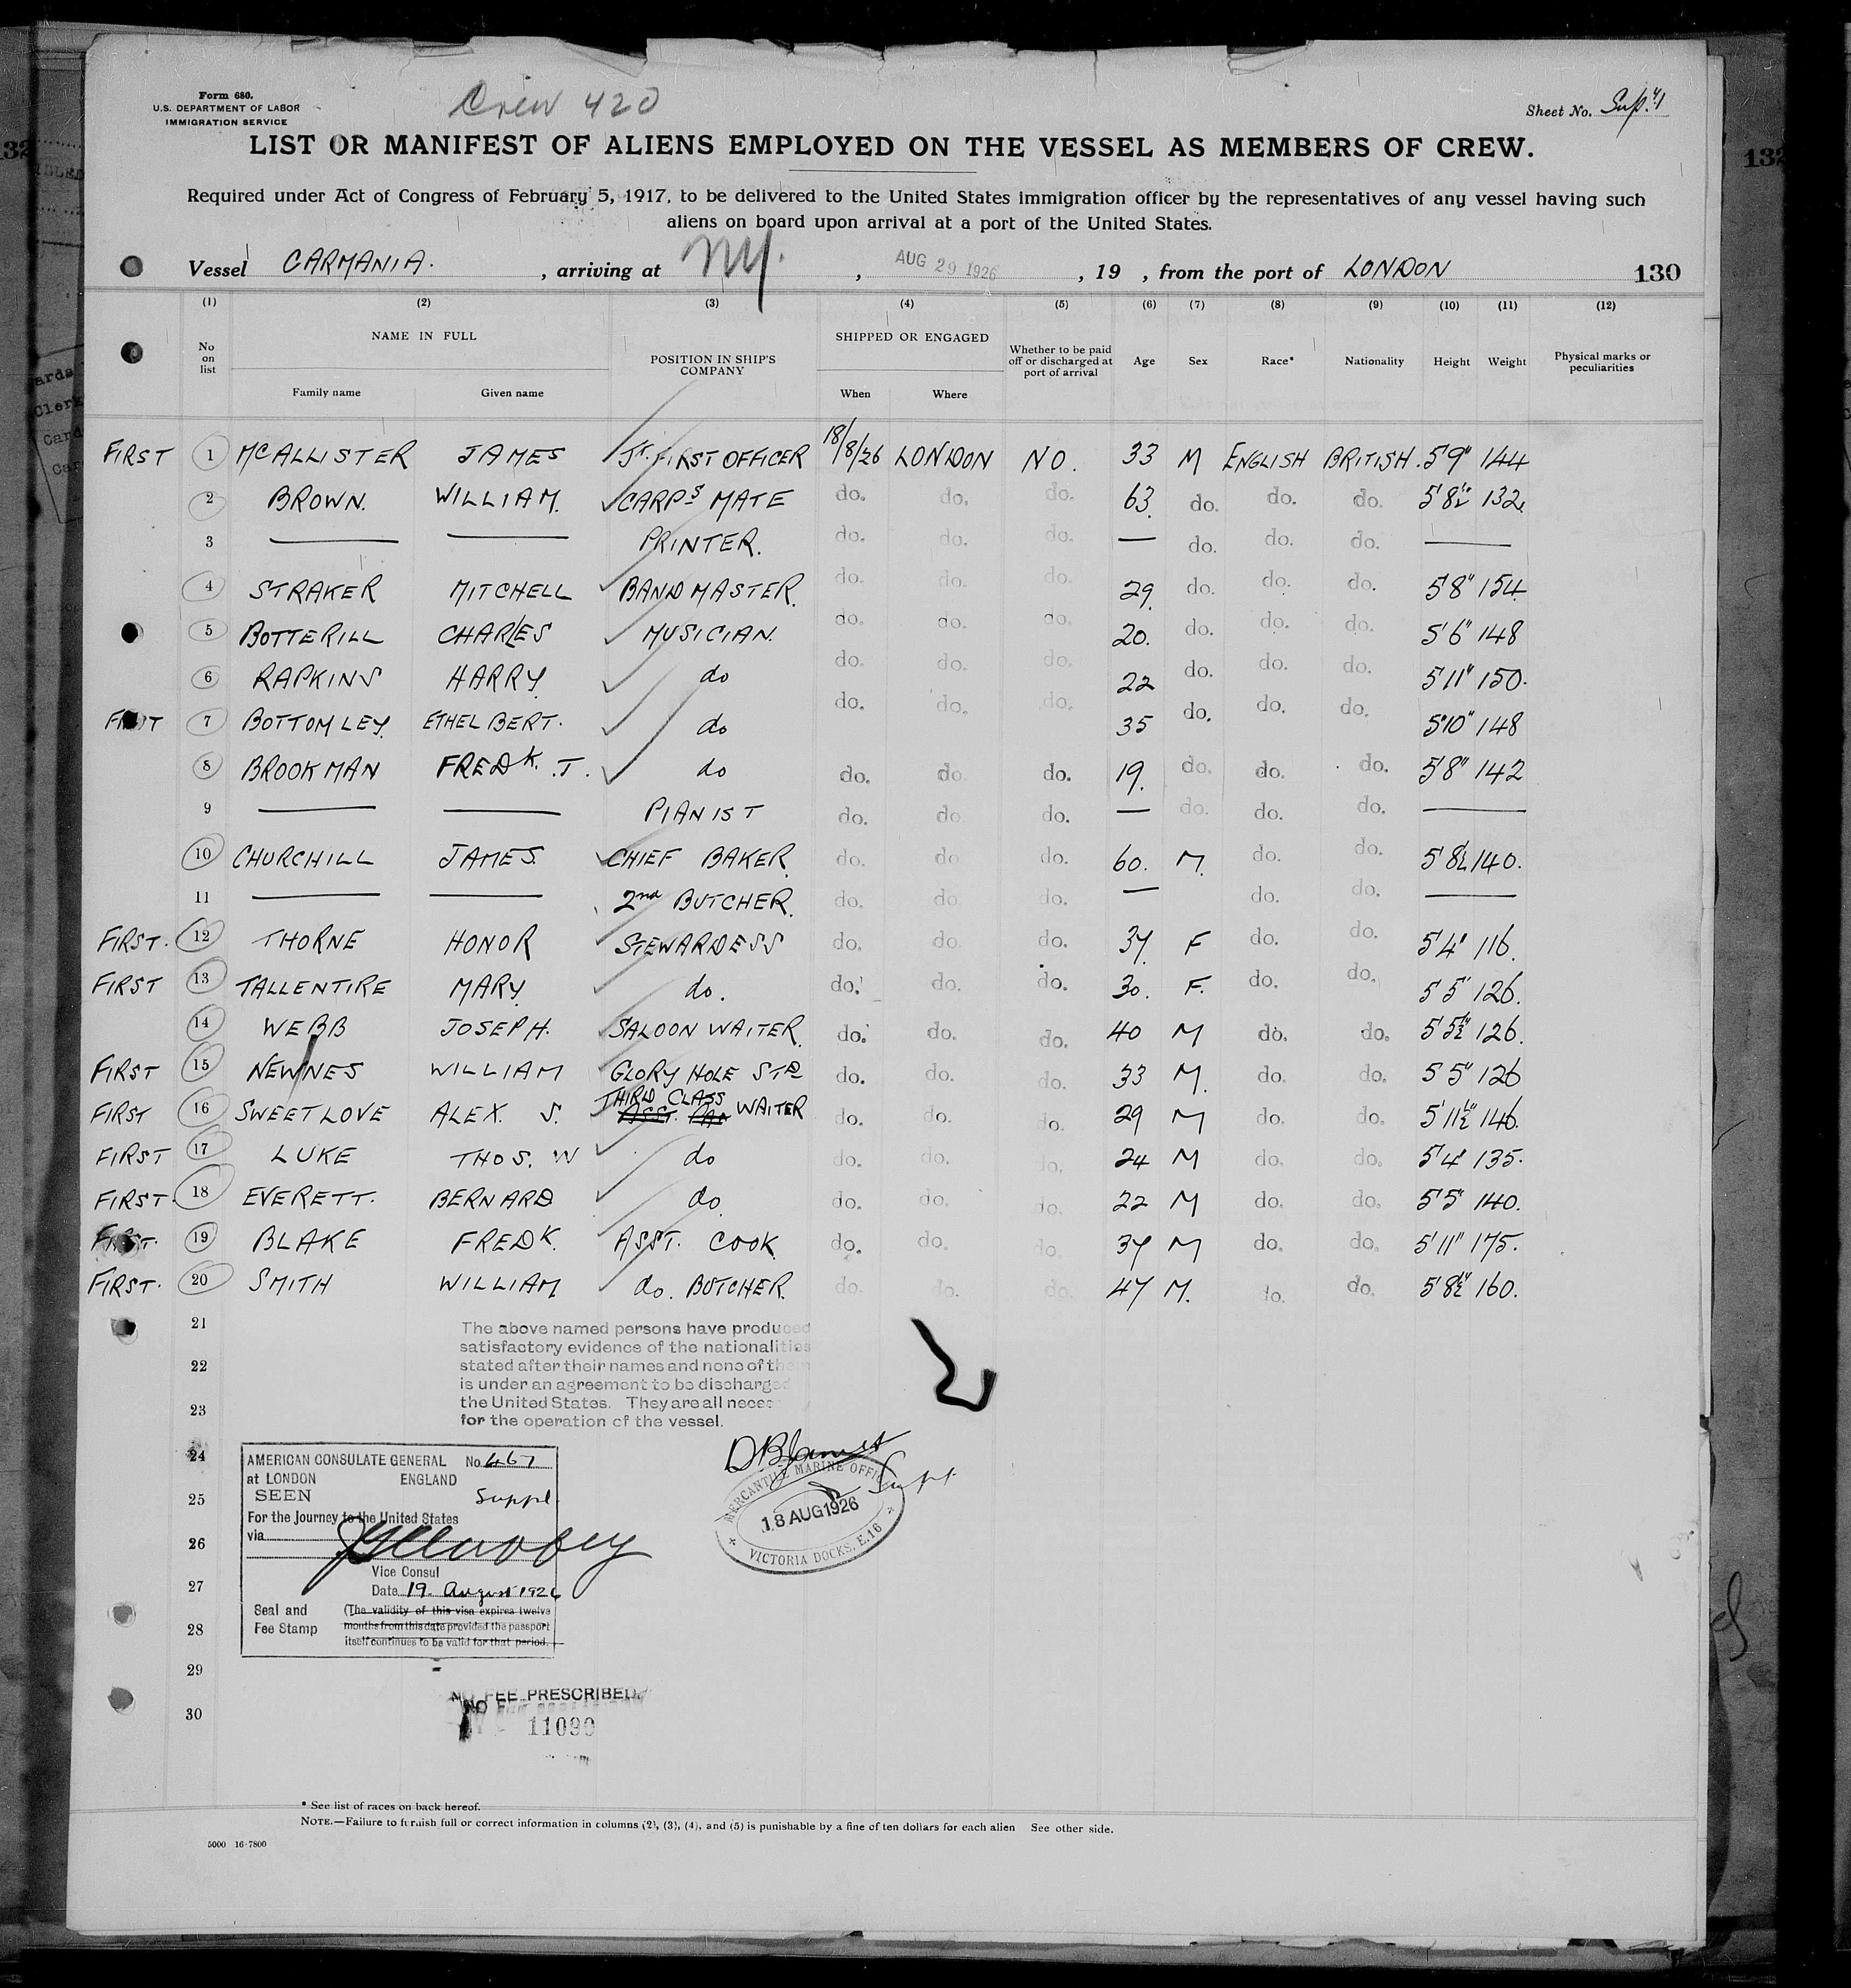 Form 680.
U.S. DEPARTMENT OF LABOR
IMMIGRATION SERVICE
Crew 420
Sheet No. Sup. 1
LIST OR MANIFEST OF ALIENS EMPLOYED ON THE VESSEL AS MEMBERS OF CREW.
Required under Act of Congress of February 5, 1917, to be delivered to the United States immigration officer by the representatives of any vessel having such
aliens on board upon arrival at a port of the United States.
Vessel CARMANIA. , arriving at NY. , AUG 29 1926 , 19 , from the port of LONDON 130
(1) (2) (3) (4) (5) (6) (7) (8) (9) (10) (11) (12)
No on list NAME IN FULL Family name Given name POSITION IN SHIP'S COMPANY SHIPPED OR ENGAGED When Where Whether to be paid off or discharged at port of arrival Age Sex Race* Nationality Height Weight Physical marks or peculiarities
FIRST 1 McALLISTER JAMES Jr. FIRST OFFICER 18/8/26 LONDON NO. 33 M ENGLISH BRITISH. 5'9" 144
2 BROWN. WILLIAM. CARPS MATE do. do. do. 63. do. do. do. 5'8½" 132.
3 — — PRINTER. do. do. do. — do. do. do. —
4 STRAKER MITCHELL BANDMASTER. do. do. do. 29. do. do. do. 5'8" 154
5 BOTTERILL CHARLES MUSICIAN. do. do. do. 20. do. do. do. 5'6" 148
6 RAPKINS HARRY do do. do. do. 22 do. do. do. 5'11" 150.
FIRST 7 BOTTOMLEY. ETHELBERT. do do. do. do. 35 do. do. do. 5'10" 148
8 BROOKMAN FREDK. J. do do. do. do. 19. do. do. do. 5'8" 142
9 — — PIANIST do. do. do. — do. do. do. —
10 CHURCHILL JAMES. CHIEF BAKER. do. do. do. 60. M. do. do. 5'8½ 140.
11 — — 2nd BUTCHER. do. do. do. — do. do. —
FIRST. 12 THORNE HONOR STEWARDESS do. do. do. 37. F do. do. 5'4" 116.
FIRST 13 TALLENTIRE MARY do. do. do. do. 30. F. do. do. 5'5" 126.
14 WEBB JOSEPH. SALOON WAITER. do. do. do. 40 M do. do. 5'5½" 126.
FIRST 15 NEWNES WILLIAM GLORY HOLE STD do. do. do. 33 M. do. do. 5'5" 126
FIRST 16 SWEETLOVE ALEX. S. THIRD CLASS ASST. PAN WAITER do. do. do. 29 M do. do. 5'11½" 146.
FIRST 17 LUKE THOS. W do do. do. do. 24 M do. do. 5'4" 135.
FIRST. 18 EVERETT. BERNARD do. do. do. do. 22 M do. do. 5'5" 140.
FIRST. 19 BLAKE FREDK. ASST. COOK do. do. do. 37 M do. do. 5'11" 175.
FIRST. 20 SMITH WILLIAM do. BUTCHER. do. do. do. 47 M. do. do. 5'8½" 160.
21
22
23
24
25
26
27
28
29
30
The above named persons have produced
satisfactory evidence of the nationalities
stated after their names and none of them
is under an agreement to be discharged
the United States. They are all neces
for the operation of the vessel.
AMERICAN CONSULATE GENERAL No. 467
at LONDON ENGLAND
SEEN Suppl.
For the Journey to the United States
via
Vice Consul
Date 19. August 1926
Seal and Fee Stamp
(The validity of this visa expires twelve
months from this date provided the passport
itself continues to be valid for that period.
Supt
MERCANTILE MARINE OFFICE
18 AUG 1926
VICTORIA DOCKS, E.16
NO FEE PRESCRIBED.
11099
* See list of races on back hereof.
NOTE.—Failure to furnish full or correct information in columns (2), (3), (4), and (5) is punishable by a fine of ten dollars for each alien See other side.
5000 16-7800